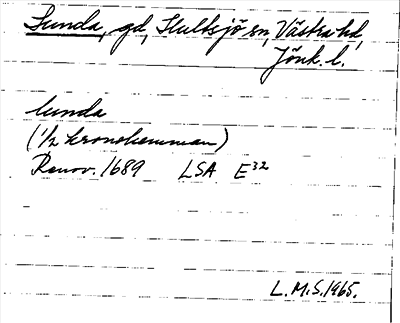 Lunda, gd, Hultsjö sn, Västra hd,
Jönk. l.
Lunda
(1/2 kronohemman)
Renov. 1689 LSA E32
L.M.S. 1965.